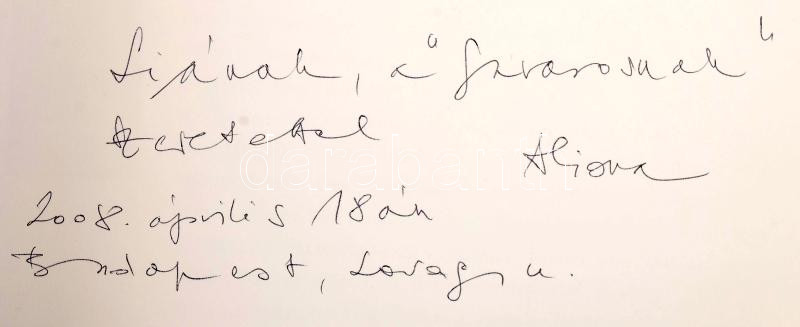 Liának, a "fuvarosnak"
szeretettel
Aliona
2008. április 18án
Budapest, Lovag u.